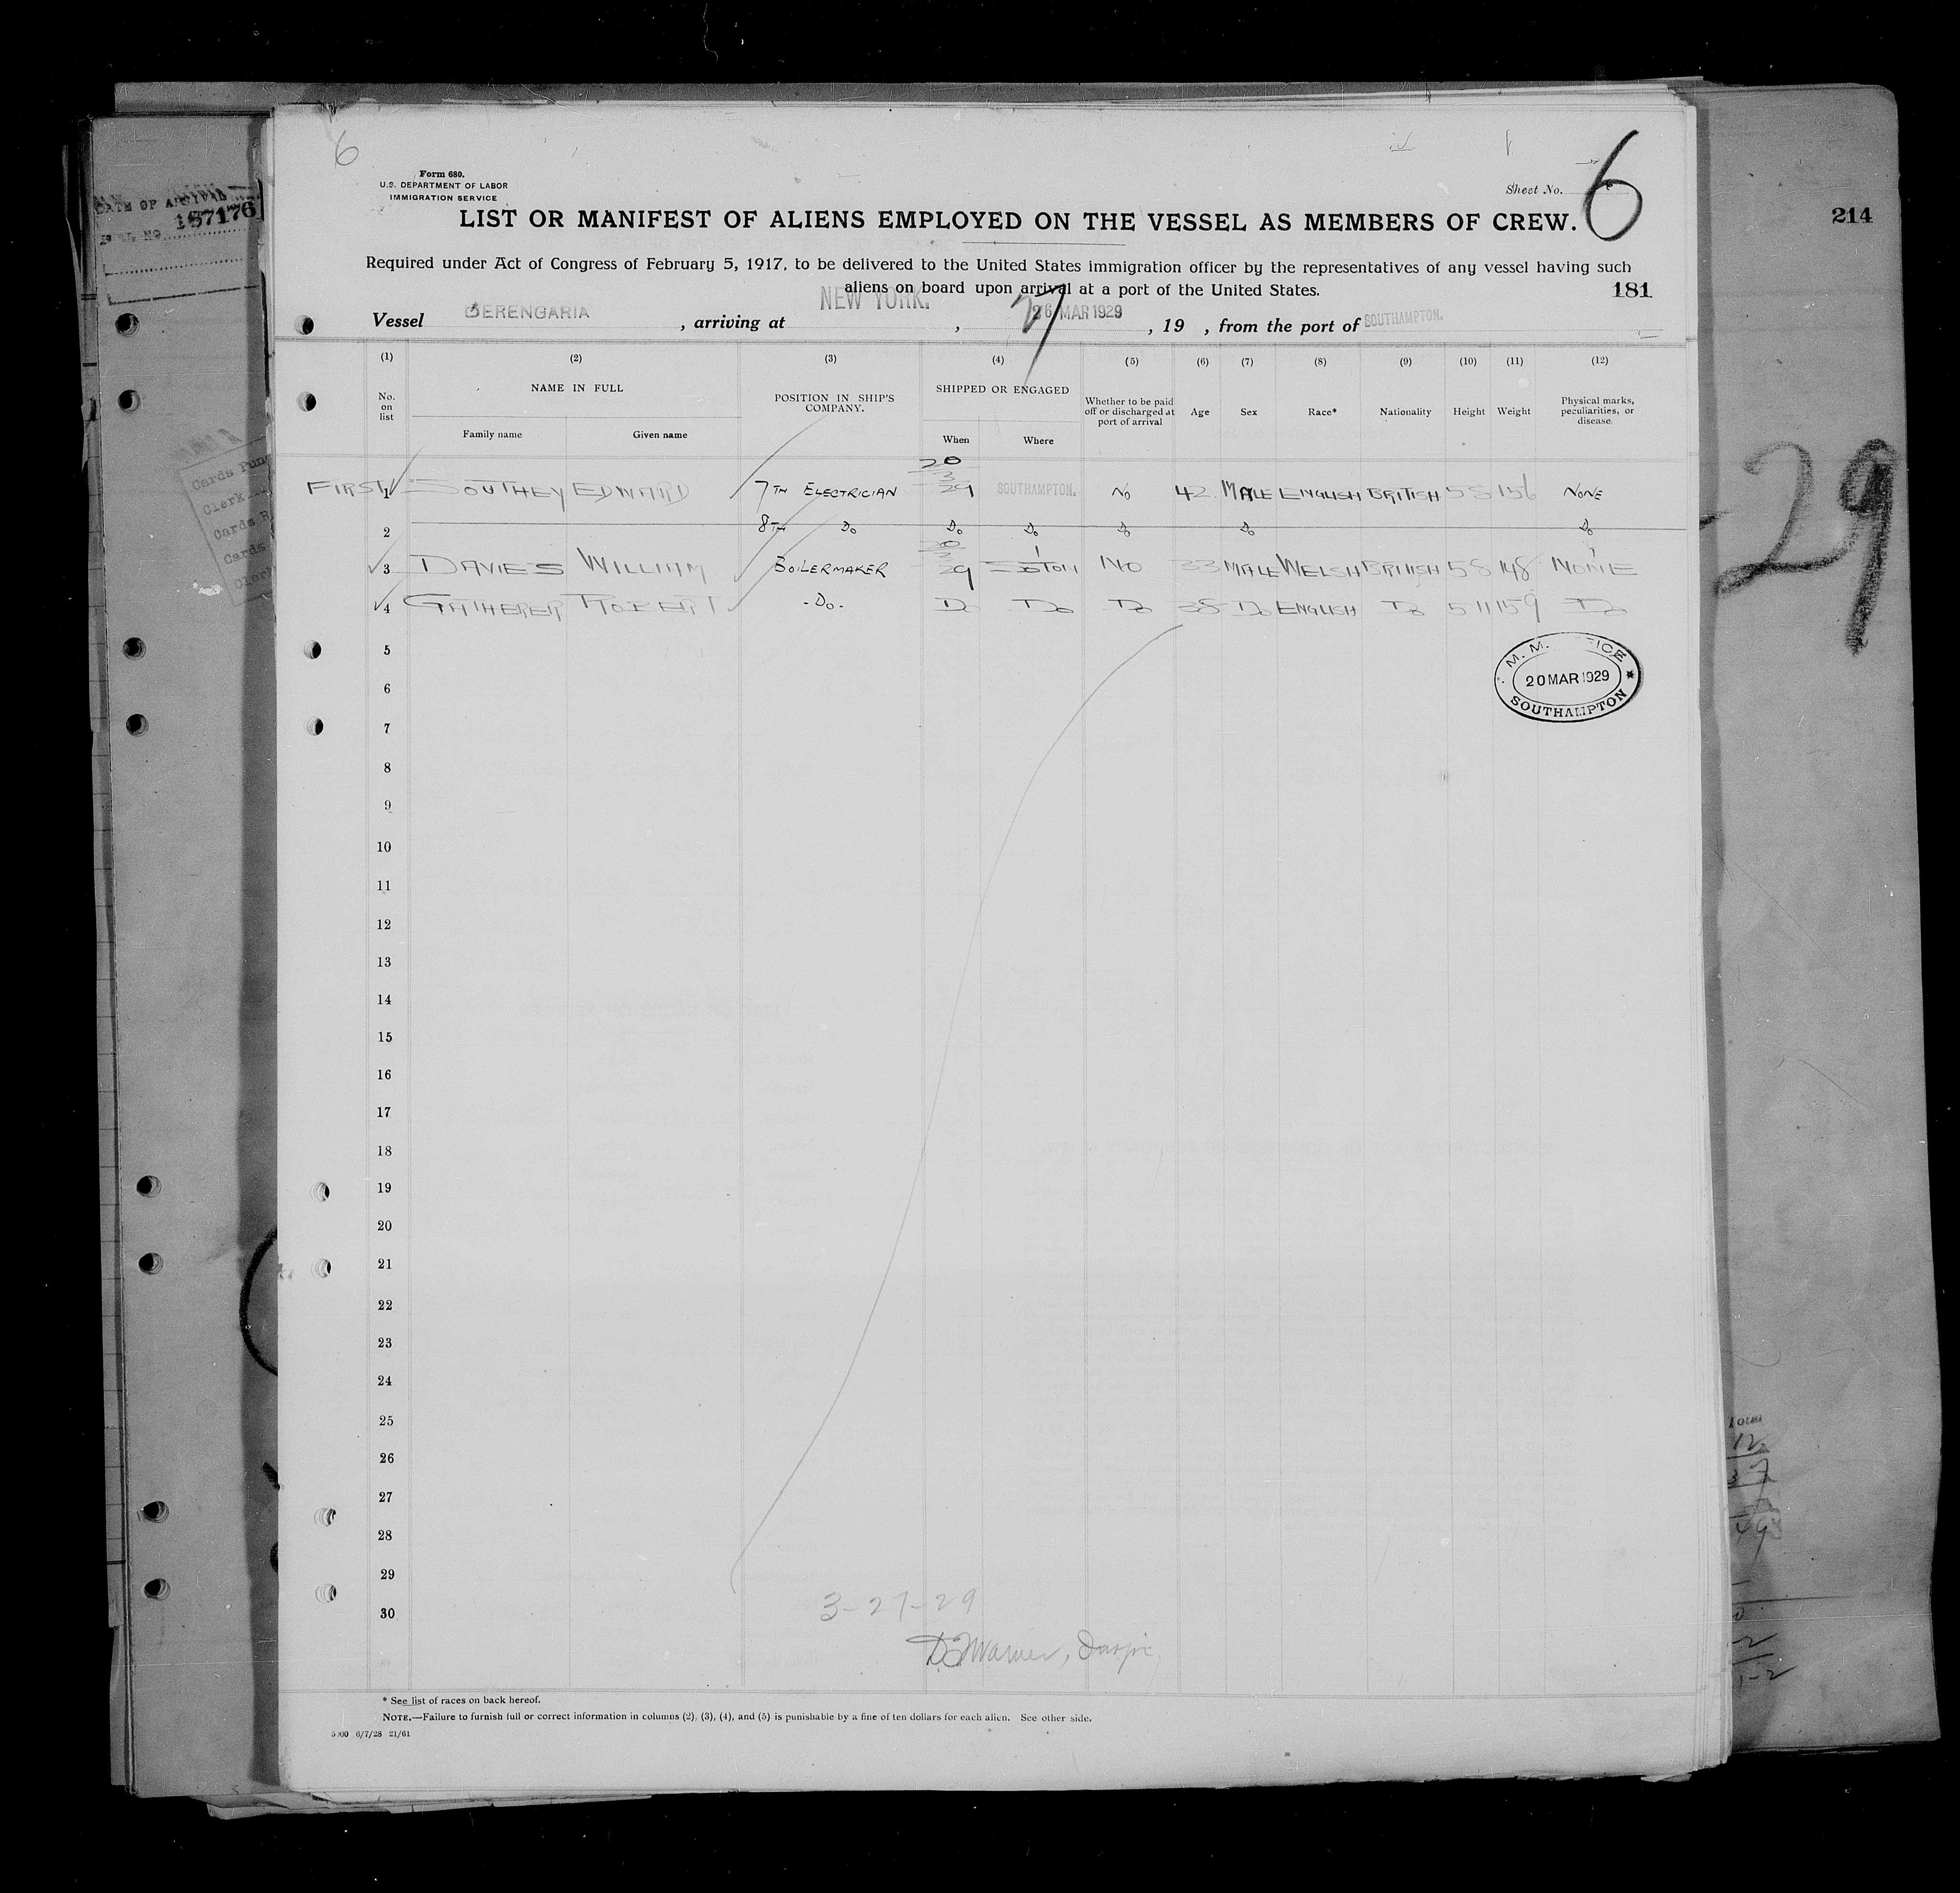 6
Form 680.
U.S. DEPARTMENT OF LABOR
IMMIGRATION SERVICE
Sheet No. 6
LIST OR MANIFEST OF ALIENS EMPLOYED ON THE VESSEL AS MEMBERS OF CREW.
Required under Act of Congress of February 5, 1917, to be delivered to the United States immigration officer by the representatives of any vessel having such
aliens on board upon arrival at a port of the United States.
181
Vessel BERENGARIA , arriving at NEW YORK. , 27 26 MAR 1929 , 19 , from the port of SOUTHAMPTON.
(1) (2) (3) (4) (5) (6) (7) (8) (9) (10) (11) (12)
No. on list NAME IN FULL Family name Given name POSITION IN SHIP'S COMPANY. SHIPPED OR ENGAGED When Where Whether to be paid off or discharged at port of arrival Age Sex Race* Nationality Height Weight Physical marks, peculiarities, or disease.
FIRST 1 SOUTHEY EDWARD 7TH ELECTRICIAN 20/3/29 SOUTHAMPTON. NO 42 MALE ENGLISH BRITISH 5 8 156 NONE
2 8TH Do Do Do Do Do Do
3 DAVIES WILLIAM BOILERMAKER 29 S'TON NO 33 MALE WELSH BRITISH 5 8 148 NONE
4 GATHERER ROBERT -Do- Do Do Do 38 Do ENGLISH Do 5 11 159 Do
5
M. M. OFFICE
20 MAR 1929
SOUTHAMPTON
6
7
8
9
10
11
12
13
14
15
16
17
18
19
20
21
22
23
24
25
26
27
28
29
30
3-27-29
* See list of races on back hereof.
NOTE.—Failure to furnish full or correct information in columns (2), (3), (4), and (5) is punishable by a fine of ten dollars for each alien. See other side.
6/7/28 21/61
DATE OF ARRIVAL
167176
Cards Pun
Clerk
Cards
Cards
214
29
Total
12